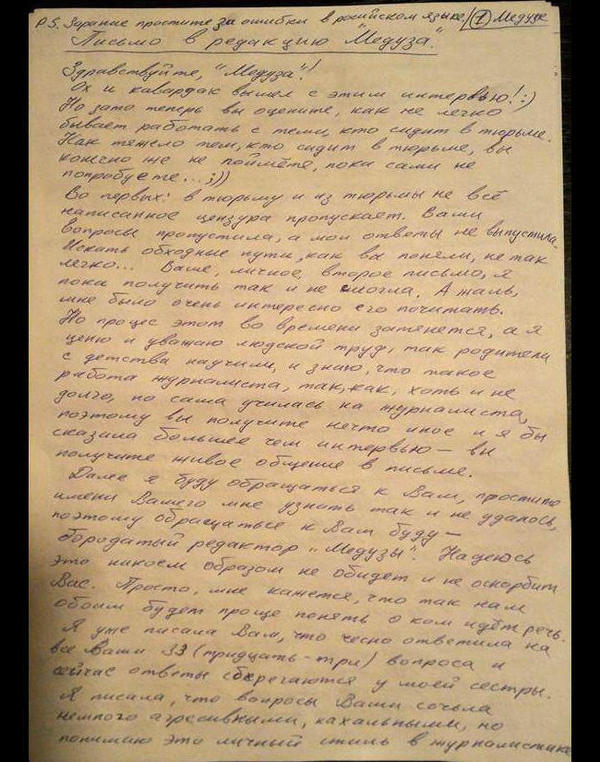 P.S. Зорание простите за ошибки в росийском языке/ ① Медузе
"Письмо в редакцию Медуза".
Здравствуйте, "Медуза"!
Ох и кавардак вышел с этим интервью! :)
Но зато теперь вы оцените, как не легко
бывает работать с теми, кто сидит в тюрьме.
Как тяжело тем, кто сидит в тюрьме, вы
конечно же не поймёте, пока сами не
попробуете... ;))
Во первых: в тюрьму и из тюрьмы не всё
написанное цензура пропускает. Ваши
вопросы пропустила, а мои ответы не выпустила.
Искать обходные пути, как вы поняли, не так
легко... Ваше, личное, второе письмо, я
пока получить так и не смогла. А жаль,
мне было очень интересно его почитать.
Но процес этот во времени затянется, а я
ценю и уважаю людской труд, так родители
с детства научили, и знаю, что такое
работа журналиста, так, как, хоть и не
долго, но сама училась на журналиста,
поэтому вы получите нечто иное и я бы
сказала большее чем интервью — вы
получите живое общение в письме.
Далее я буду обращаться к Вам, простите
имени Вашего мне узнать так и не удалось,
поэтому обращаться к Вам буду —
бородатый редактор „Медузы". Надеюсь
это никоем образом не обидет и не оскорбит
Вас. Просто, мне кажется, что так нам
обоим будет проще понять о ком идёт речь.
Я уже писала Вам, что чесно ответила на
все Ваши 33 (тридцать-три) вопроса и
сейчас ответы сберегаются у моей сестры.
Я писала, что вопросы Ваши сочла
немного агресивными, нахальными, но
понимаю это личный стиль в журналистике